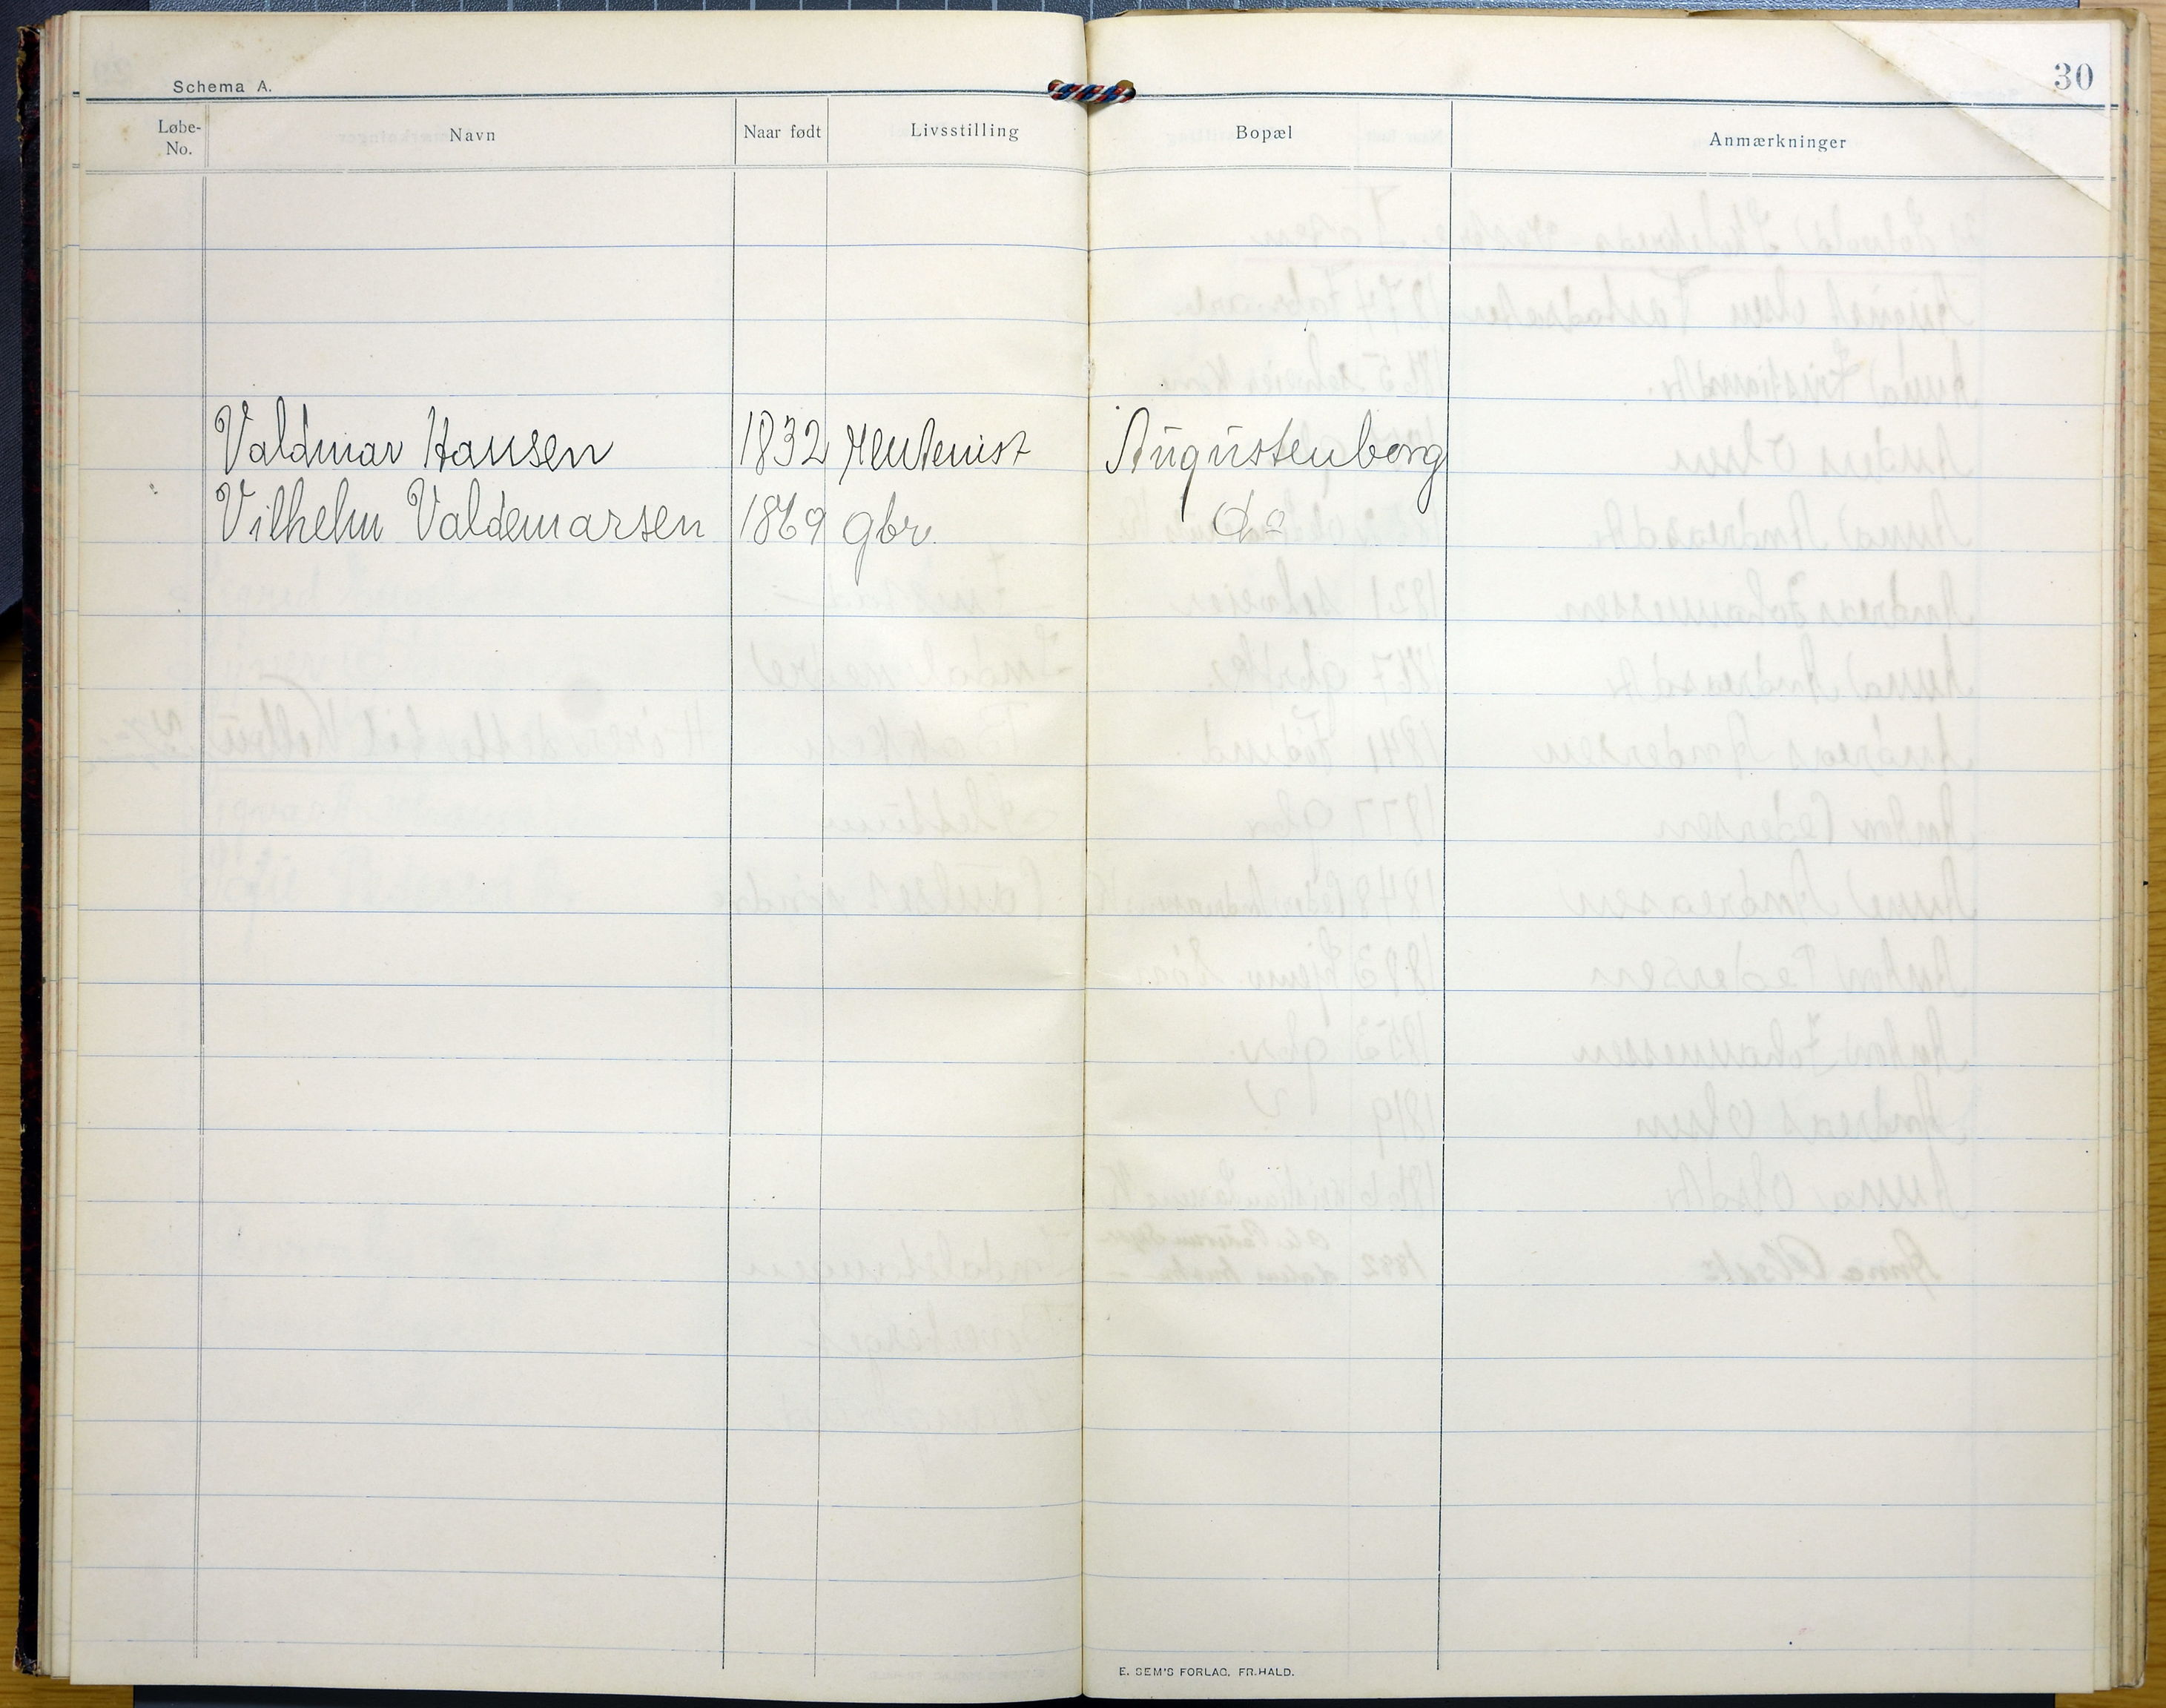 Schema A.
30
Løbe-No. Navn Naar født Livsstilling Bopæl Anmærkninger
Valdmar Hansen 1832 Rentenist Augustenborg
Vilhelm Valdemarsen 1869 gbr. do
E. SEM'S FORLAG, FR.HALD.